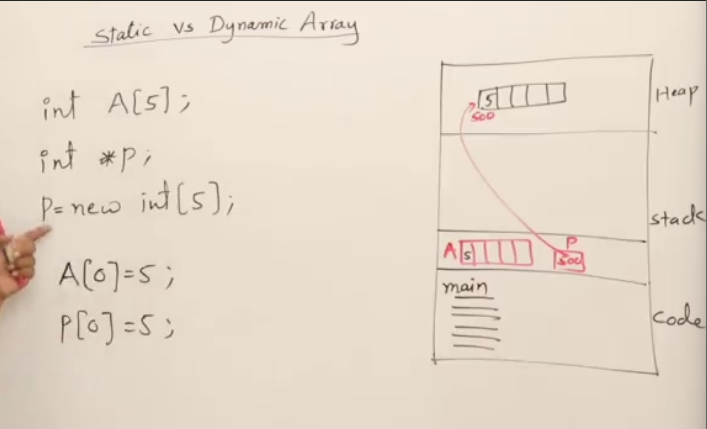 Static vs Dynamic Array
int A[5];
int *p;
P= new int[5];
A[0]=5;
P[0]=5;
5
500
Heap
stack
A
5
P
500
main
code